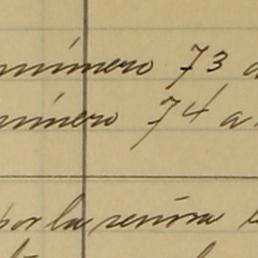 número 73 a
número 74 a
por la señora